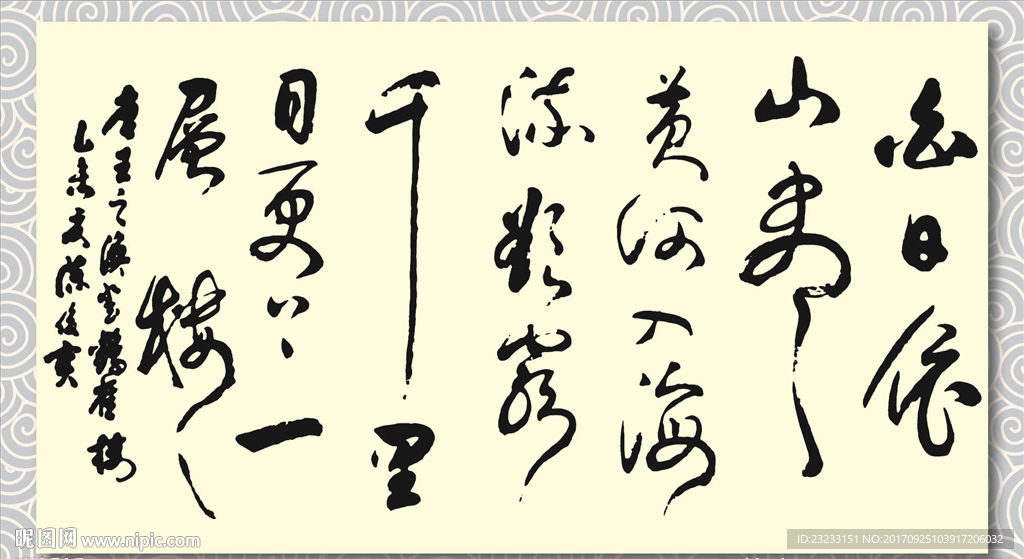 白日依
山盡
黄河入海
流欲窮
千里
目更上一
層樓
唐王之涣登鸛雀樓
乙未夏
昵图网 www.nipic.com
ID:23233151 NO:20170925103917206032